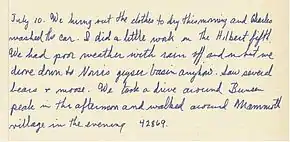 July 10. We hung out the clothes to dry this morning and Charles
washed the car. I did a little work on the Hilbert fifth.
We had poor weather with rain off and on but we
drove down to Norris geyser basin anyhow. Saw several
bears + moose. We took a drive around Bunsen
peak in the afternoon and walked around Mammoth
village in the evening 42869.